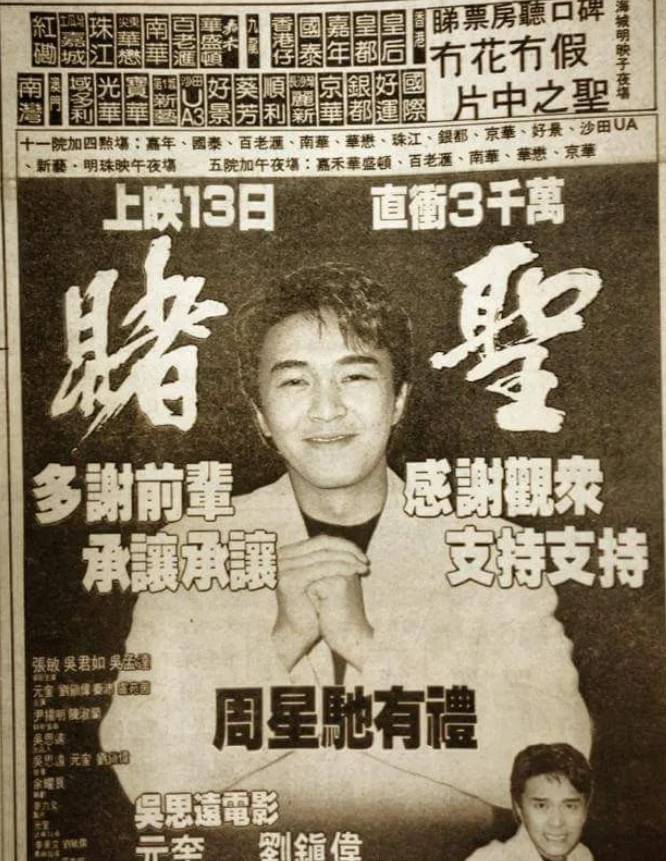 海城明映子夜場
睇票房聽口碑
冇花冇假
片中之聖
香港 皇后 皇都 嘉年 國泰 香港仔 九龍 嘉禾 華盛頓 百老滙 南華 華懋 珠江 嘉城 紅磡
國際 好運 銀都 京華 麗新 順利 葵芳 好景 沙田UA3 新藝 寶華 光華 域多利 澳門 南灣
十一院加四點場：嘉年、國泰、百老滙、南華、華懋、珠江、銀都、京華、好景、沙田UA
、新藝．明珠映午夜場 五院加午夜場：嘉禾華盛頓、百老滙、南華、華懋、京華
上映13日 直衝3千萬
賭聖
多謝前輩 感謝觀衆
承讓承讓 支持支持
張敏 吳君如 吳孟達
元奎 劉鎮偉 秦沛
尹揚明 陳淑蘭
吳思遠
吳思遠 元奎 劉鎮偉
周星馳有禮
吳思遠電影
元奎 劉鎮偉